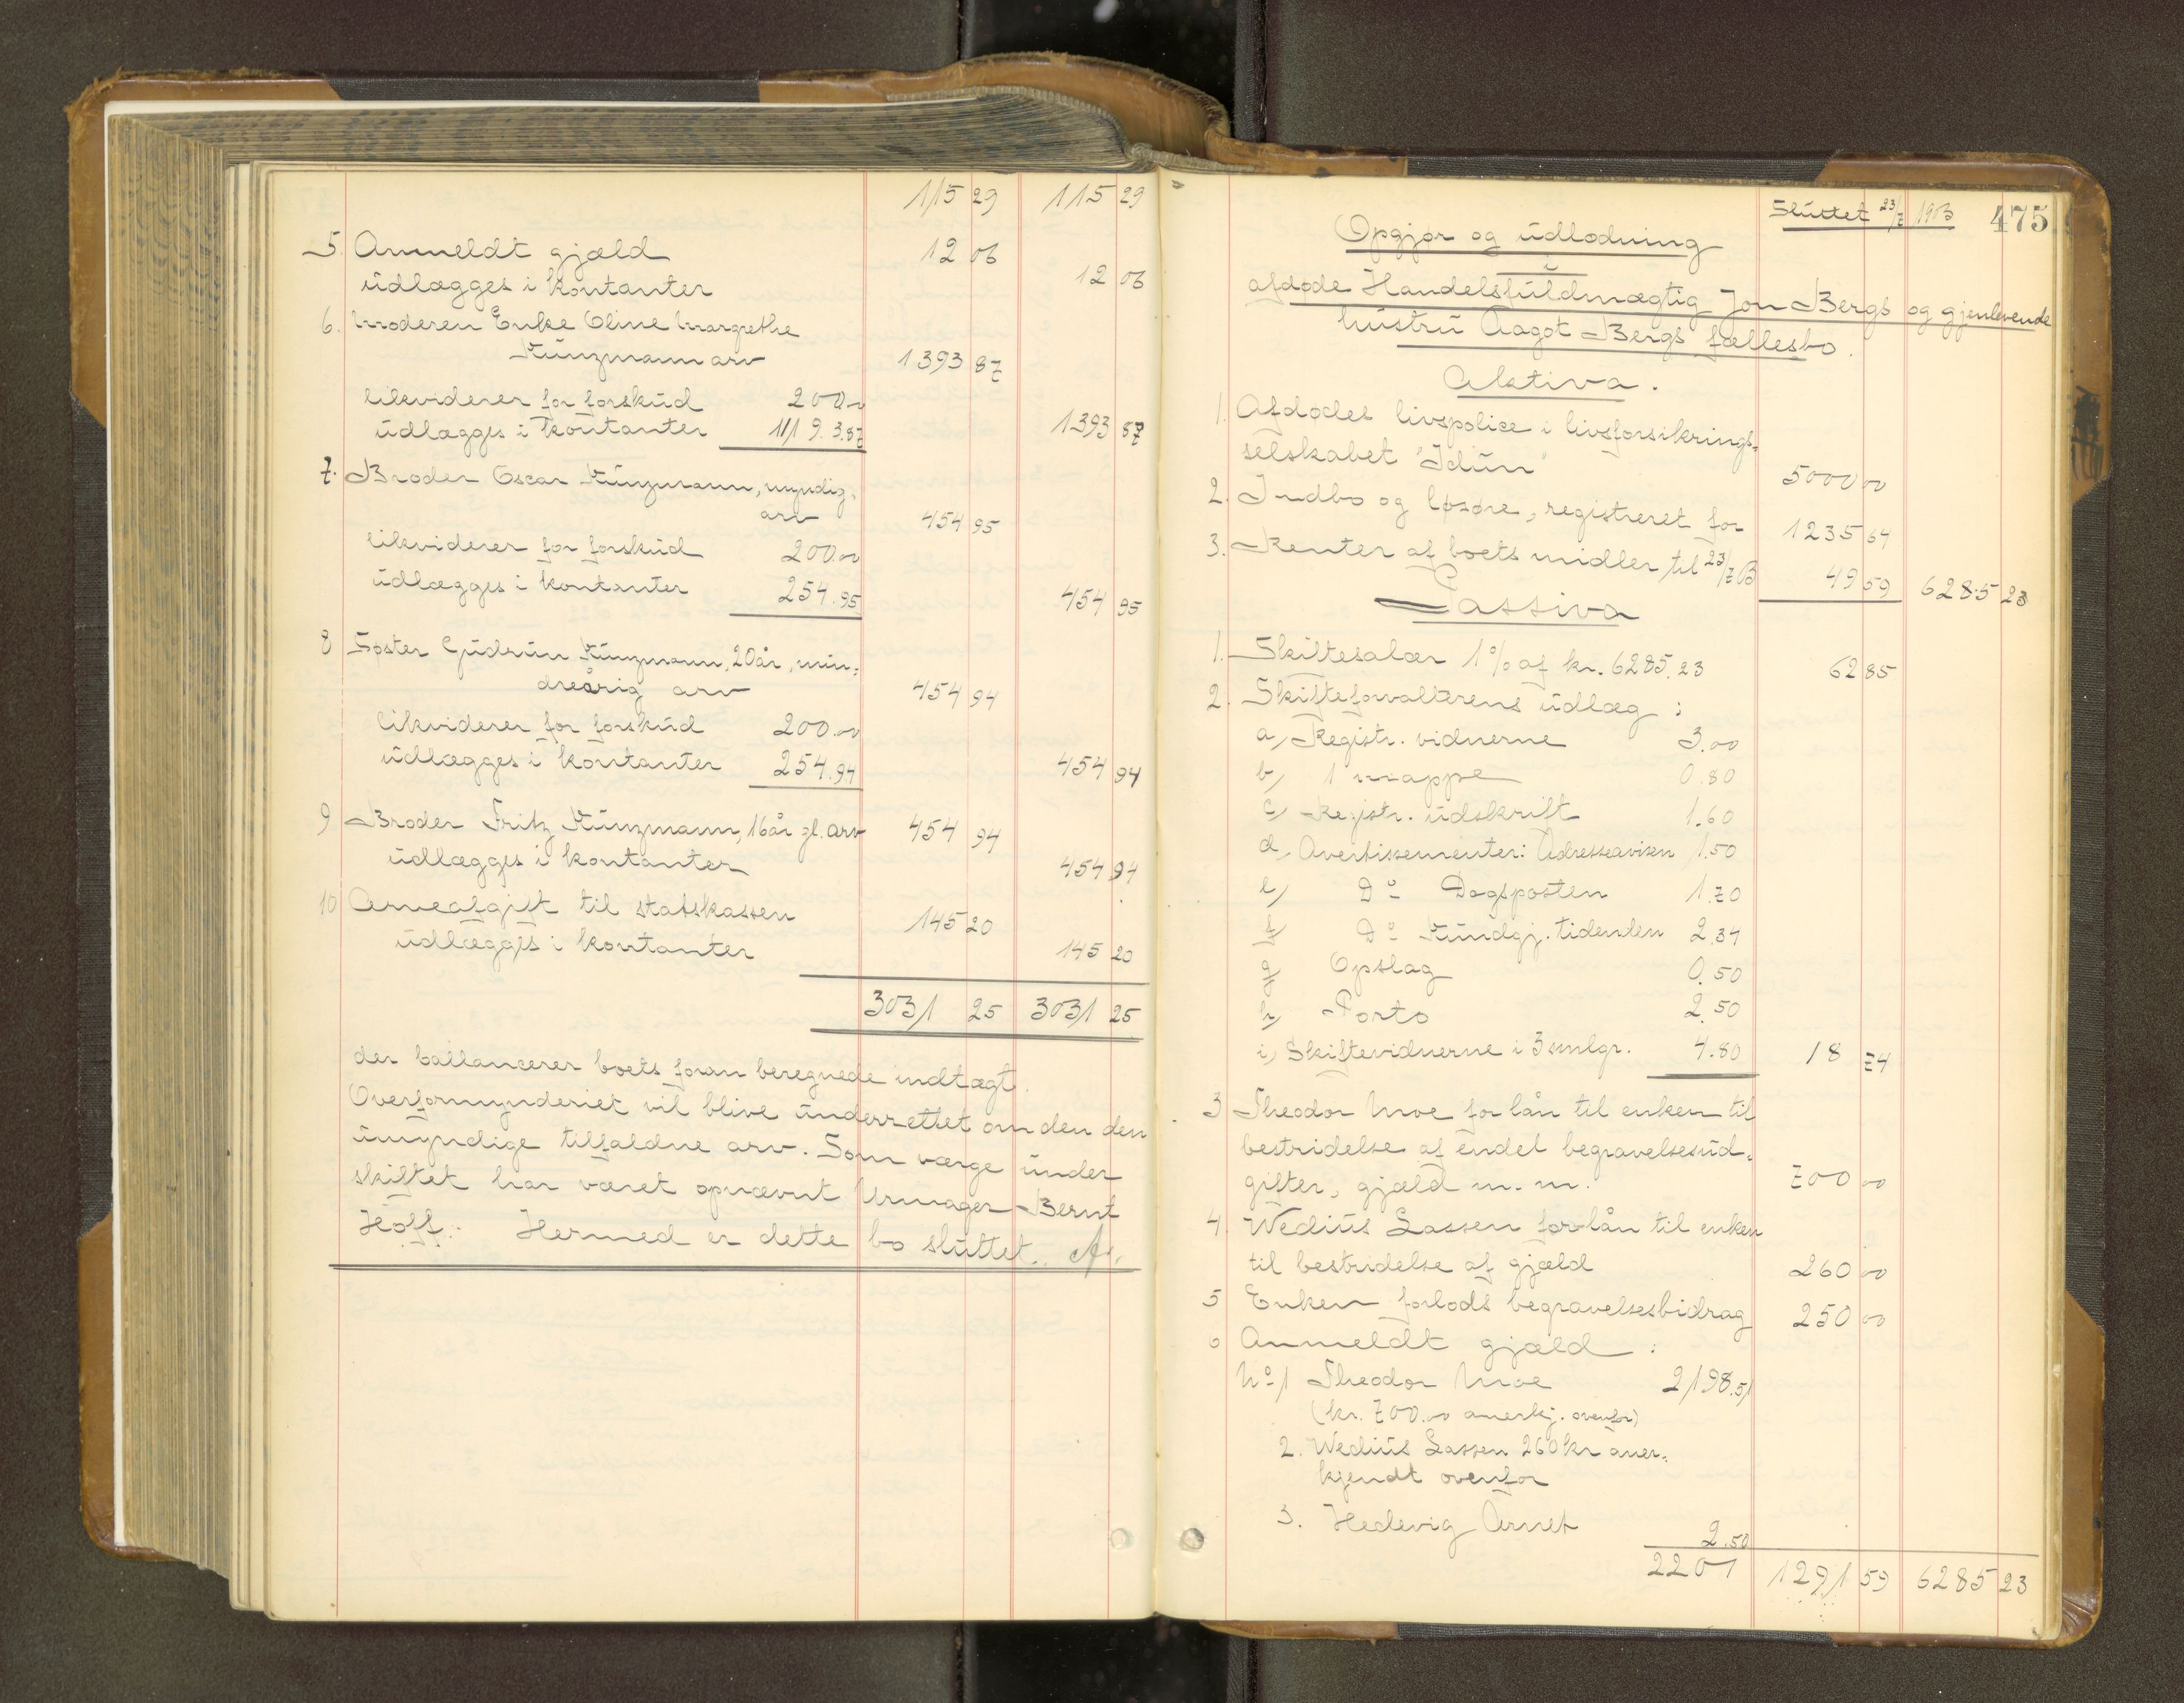 115 29 115 29
5. Anmeldt gjæld 12 06
udlægges i kontanter 12 06
6. Moderen Enke Oline Margrethe
Kunzmann arv 1393 87
likviderer for forskud 200.00
udlægges i kontanter 1193.87 1393 87
7. Broder Oscar Kunzmann, myndig,
arv 454 95
likviderer for forskud 200.00
udlægges i kontanter 254.95 454 95
8 Søster Gudrun Kunzmann, 20 år, min-
dreårig arv 454 94
likviderer for forskud 200.00
udlægges i kontanter 254.94 454 94
9 Broder Fritz Kunzmann, 16 år gl. arv 454 94
udlægges i kontanter 454 94
10 Arveafgift til statskassen 145 20
udlægges i kontanter 145 20
3031 25 3031 25
der ballancerer boets foran beregnede indtægt.
Overformynderiet vil blive underrettet om den den
umyndige tilfaldne arv. Som værge under
skiftet har været opnævnt Urmager Bernt
Hoff. Hermed er dette bo sluttet.
Sluttet 23/7 1903 475
Opgjør og udlodning
i
afdøde Handelsfuldmægtig Jon Bergs og gjenlevende
hustru Aagot Bergs fællesbo.
Aktiva.
1. Afdødes livspolice i livsforsikrings-
selskabet "Idun" 5000 00
2. Indbo og løsøre, registreret for 1235 64
3. Renter af boets midler til 23/7 03 49 59 6285 23
Passiva
1. Skiftesalær 1% af kr. 6285.23 62 85
2. Skifteforvalterens udlæg:
a, Registr. vidnerne 3.00
b, 1 mappe 0.80
c, Registr. udskrift 1.60
d, Avertissementer: Adresseavisen 1.50
e, Do Dagsposten 1.70
f, Do Kundgj. tidenden 2.34
g, Opslag 0.50
h, Porto 2.50
i, Skiftevidnerne i 3 smlgr. 4.80 18 74
3 Theodor Moe for lån til enken til
bestridelse af endel begravelsesud-
gifter, gjæld m. m. 700 00
4. Wedius Lassen for lån til enken
til bestridelse af gjæld 260 00
5 Enken forlods begravelsesbidrag 250 00
6 Anmeldt gjæld:
No 1 Theodor Moe 2198.51
(kr. 700.00 anerkj. ovenfor)
2. Wedius Lassen 260 kr aner-
kjendt ovenfor
3. Hedevig Arnet 2.50
2201 1291 59 6285 23